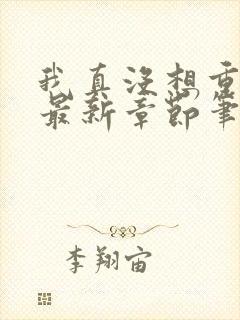 我真没想重
最新章节笔
李翔宙